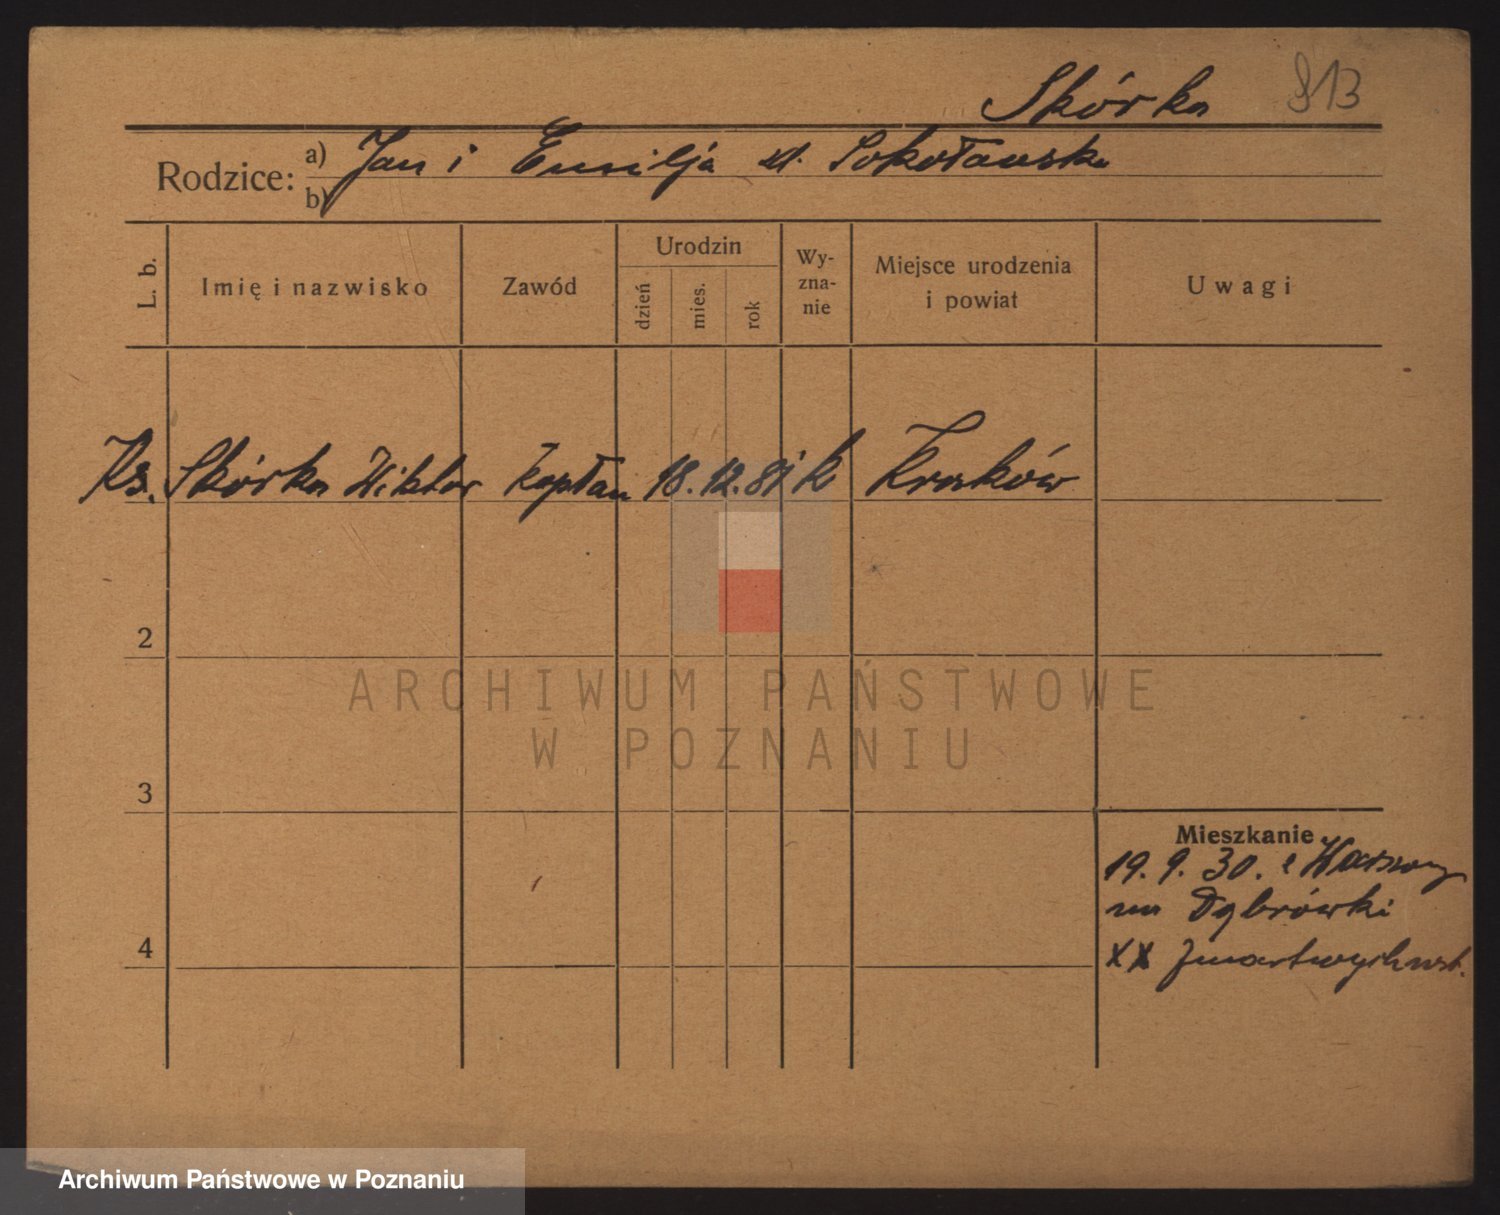 Skórka 813
Rodzice: a) Jan i Emilja d. Sokołowska
b)
L. b. Imię i nazwisko Zawód Urodzin dzień mies. rok Wyznanie Miejsce urodzenia i powiat Uwagi
Ks. Skórka Wiktor kapłan 18. 12. 81 k Kraków
2
3
4
Mieszkanie
19. 9. 30. z Warszawy
na Dąbrówki
XX Zmartwychwst.
ARCHIWUM PAŃSTWOWE
W POZNANIU
Archiwum Państwowe w Poznaniu